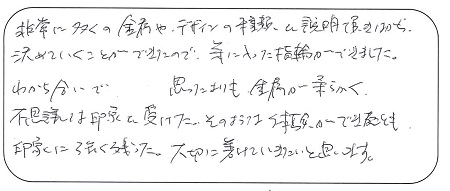 非常に多くの金属や、デザインの種類、ご説明頂きながら、
決めていくことができたので、気に入った指輪ができました。
わかち合いで 思ったよりも金属が柔らかく、
不思議な印象を受けた。そのような体験ができ、とても
印象に強く残った。大切に着けていきたいと思います。